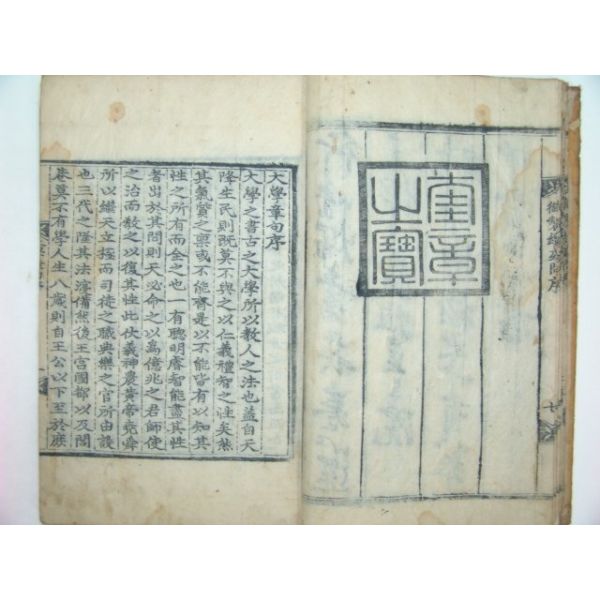 奎章
之寶
大學章句序
大學之書古之大學所以教人之法也蓋自天
降生民則旣莫不與之以仁義禮智之性矣然
其氣質之稟或不能齊是以不能皆有以知其
性之所有而全之也一有聰明睿智能盡其性
者出於其間則天必命之以爲億兆之君師使
之治而教之以復其性此伏羲神農黃帝堯舜
所以繼天立極而司徒之職典樂之官所由設
也三代之隆其法寖備然後王宮國都以及閭
巷莫不有學人生八歲則自王公以下至於庶